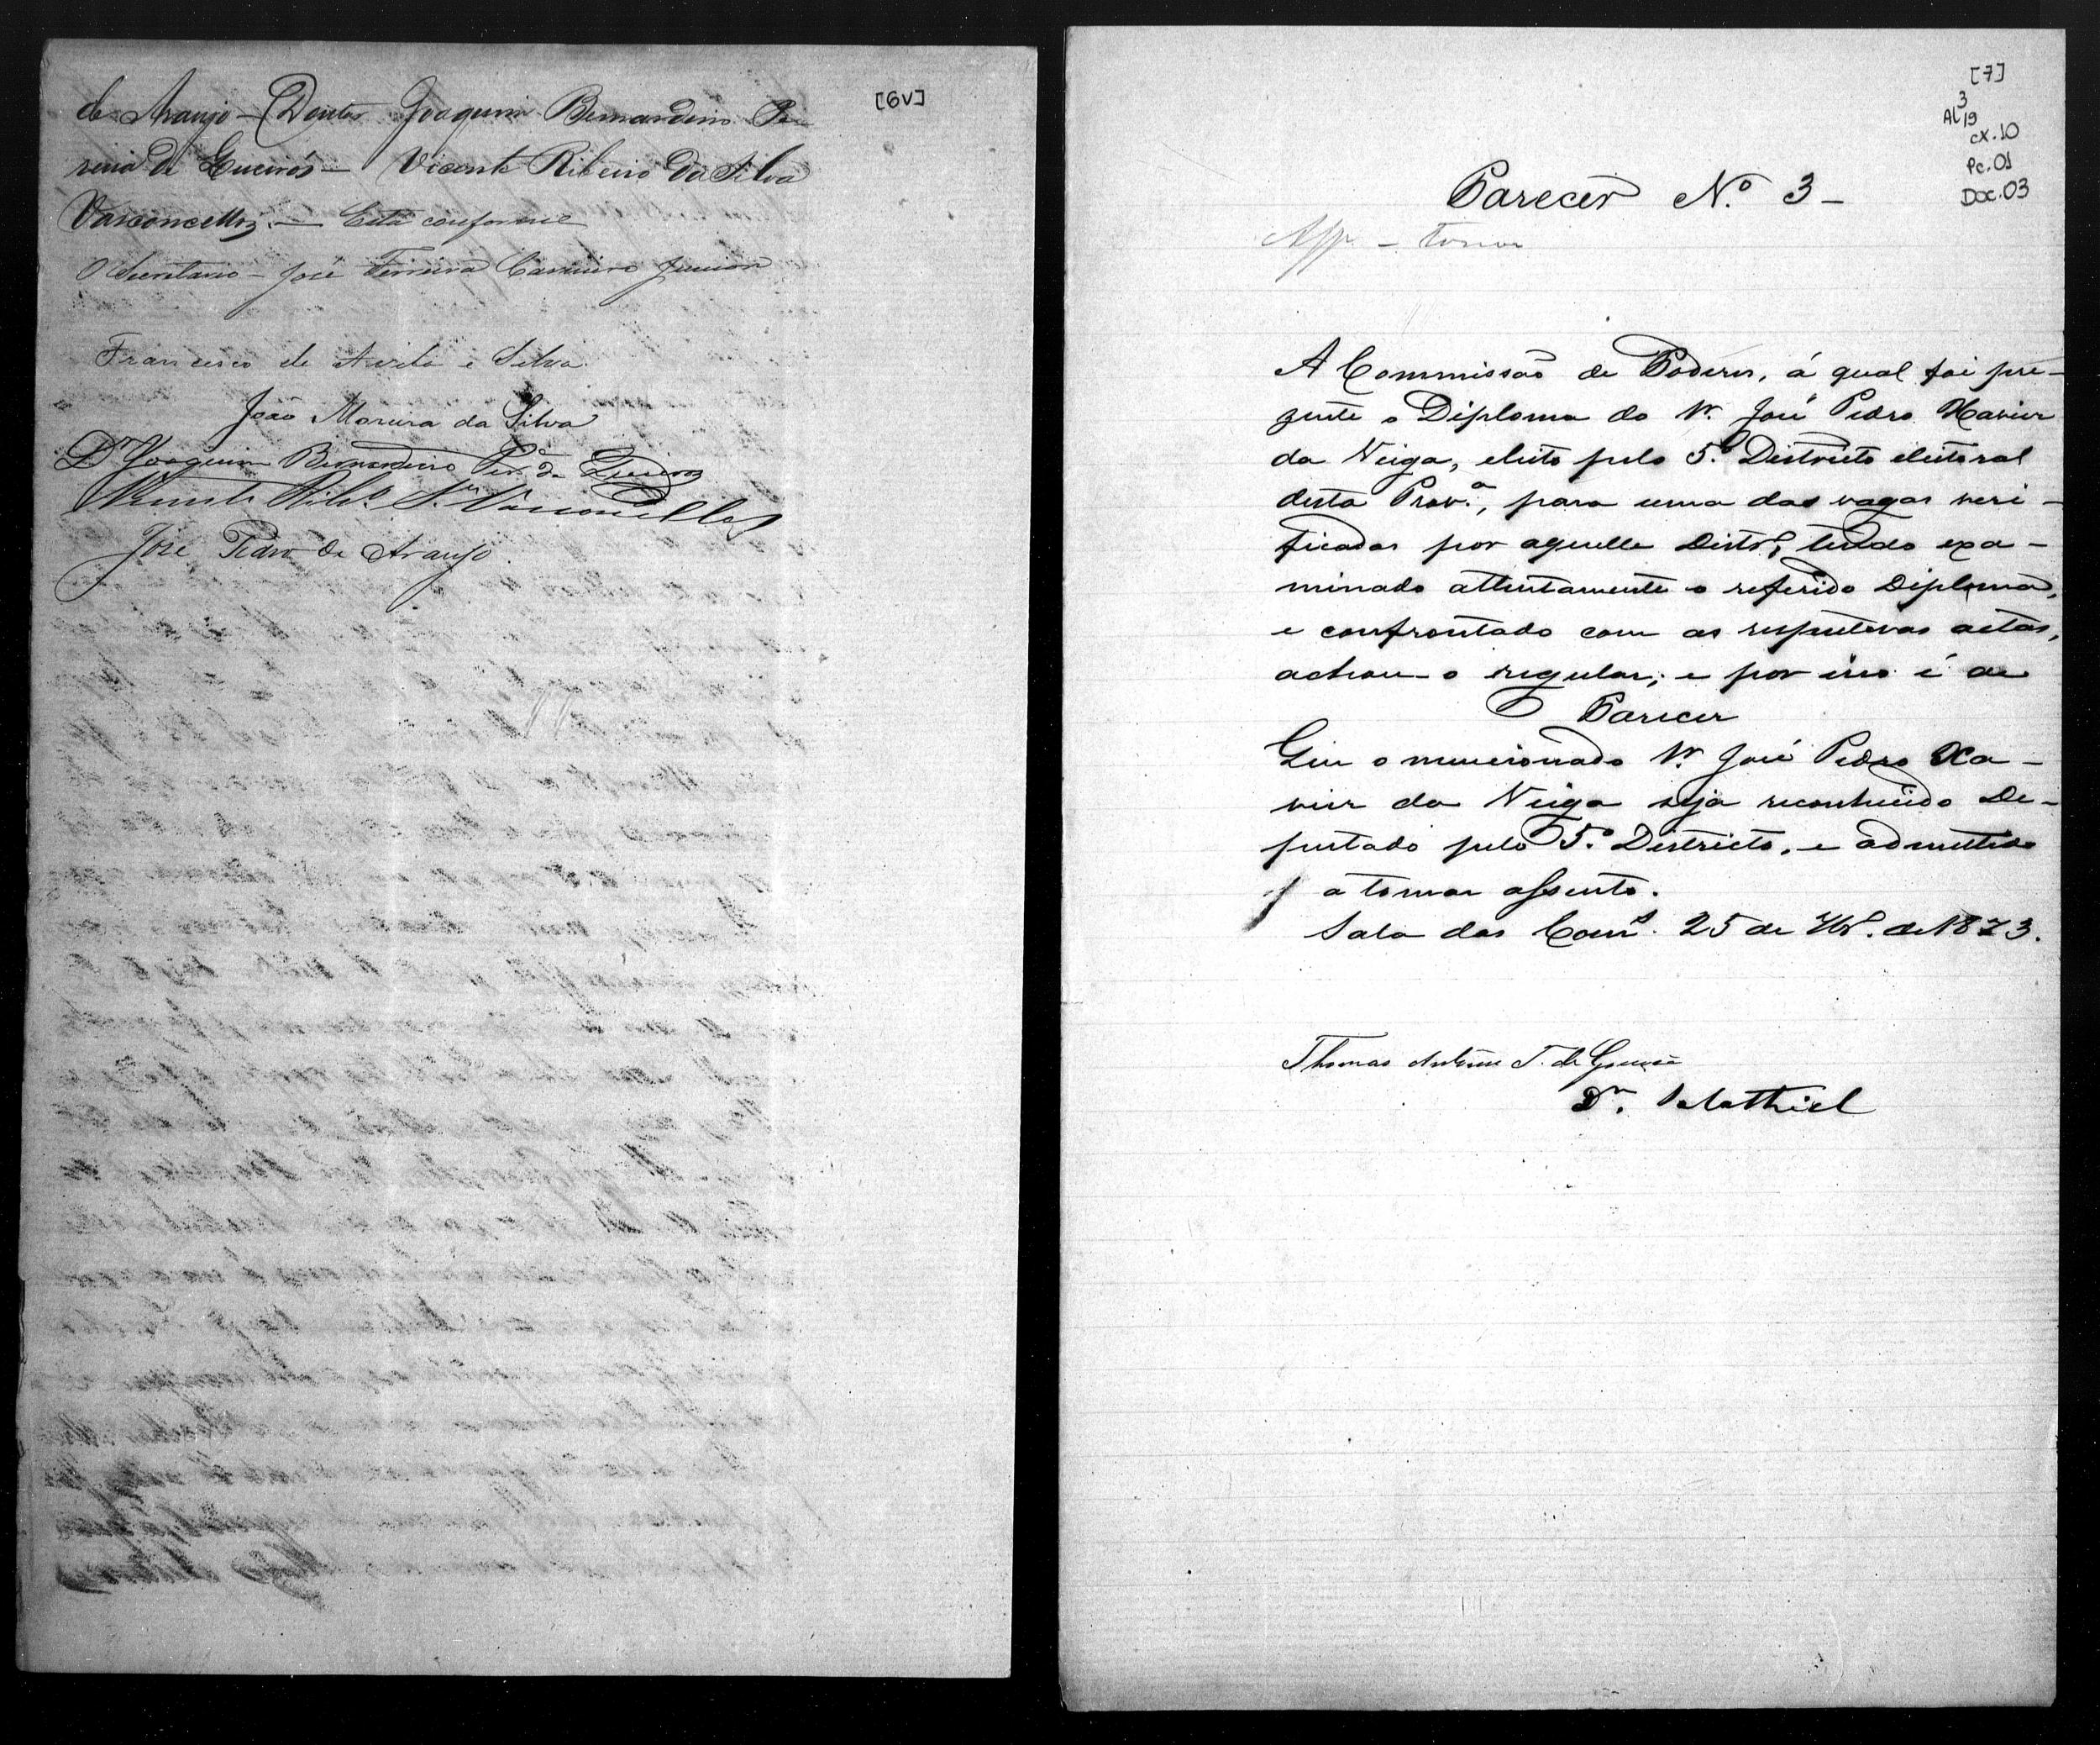 [6V]
de Araujo — Doutor Joaquim Bernardino Pe-
reira de Queirós — Vicente Ribeiro da Silva
Vasconcellos. — Está conforme
O Secretario — José Ferreira Carneiro Junior
Francisco de Avila e Silva.
João Moreira da Silva
Dr Joaquim Bernardino Per.a de Queiroz
Vicente Ribr.o S.a Vasconcellos
José Pedro de Araujo.
[7]
3
AL19
CX.10
Pc.01
Doc.03
Parecer N.o 3 —
App. — tomar
A Commissão de Poderes, á qual foi pre-
zente o Diploma do Sr. José Pedro Xavier
da Veiga, eleito pelo 5.o Districto eleitoral
desta Prov.a, para uma das vagas veri-
ficadas por aquelle Distr.o, tendo exa-
minado attentamente o referido Diploma,
e confrontado com as respectivas actas,
achou-o regular; e por isso é de
Parecer
Que o mencionado Sr. José Pedro Xa-
vier da Veiga seja reconhecido De-
putado pelo 5.o Districto, e admittido
a tomar assento.
Sala das Com.s 25 de de 1873.
Thomas Antonio T. de Gouvea
Dr. Mathiel